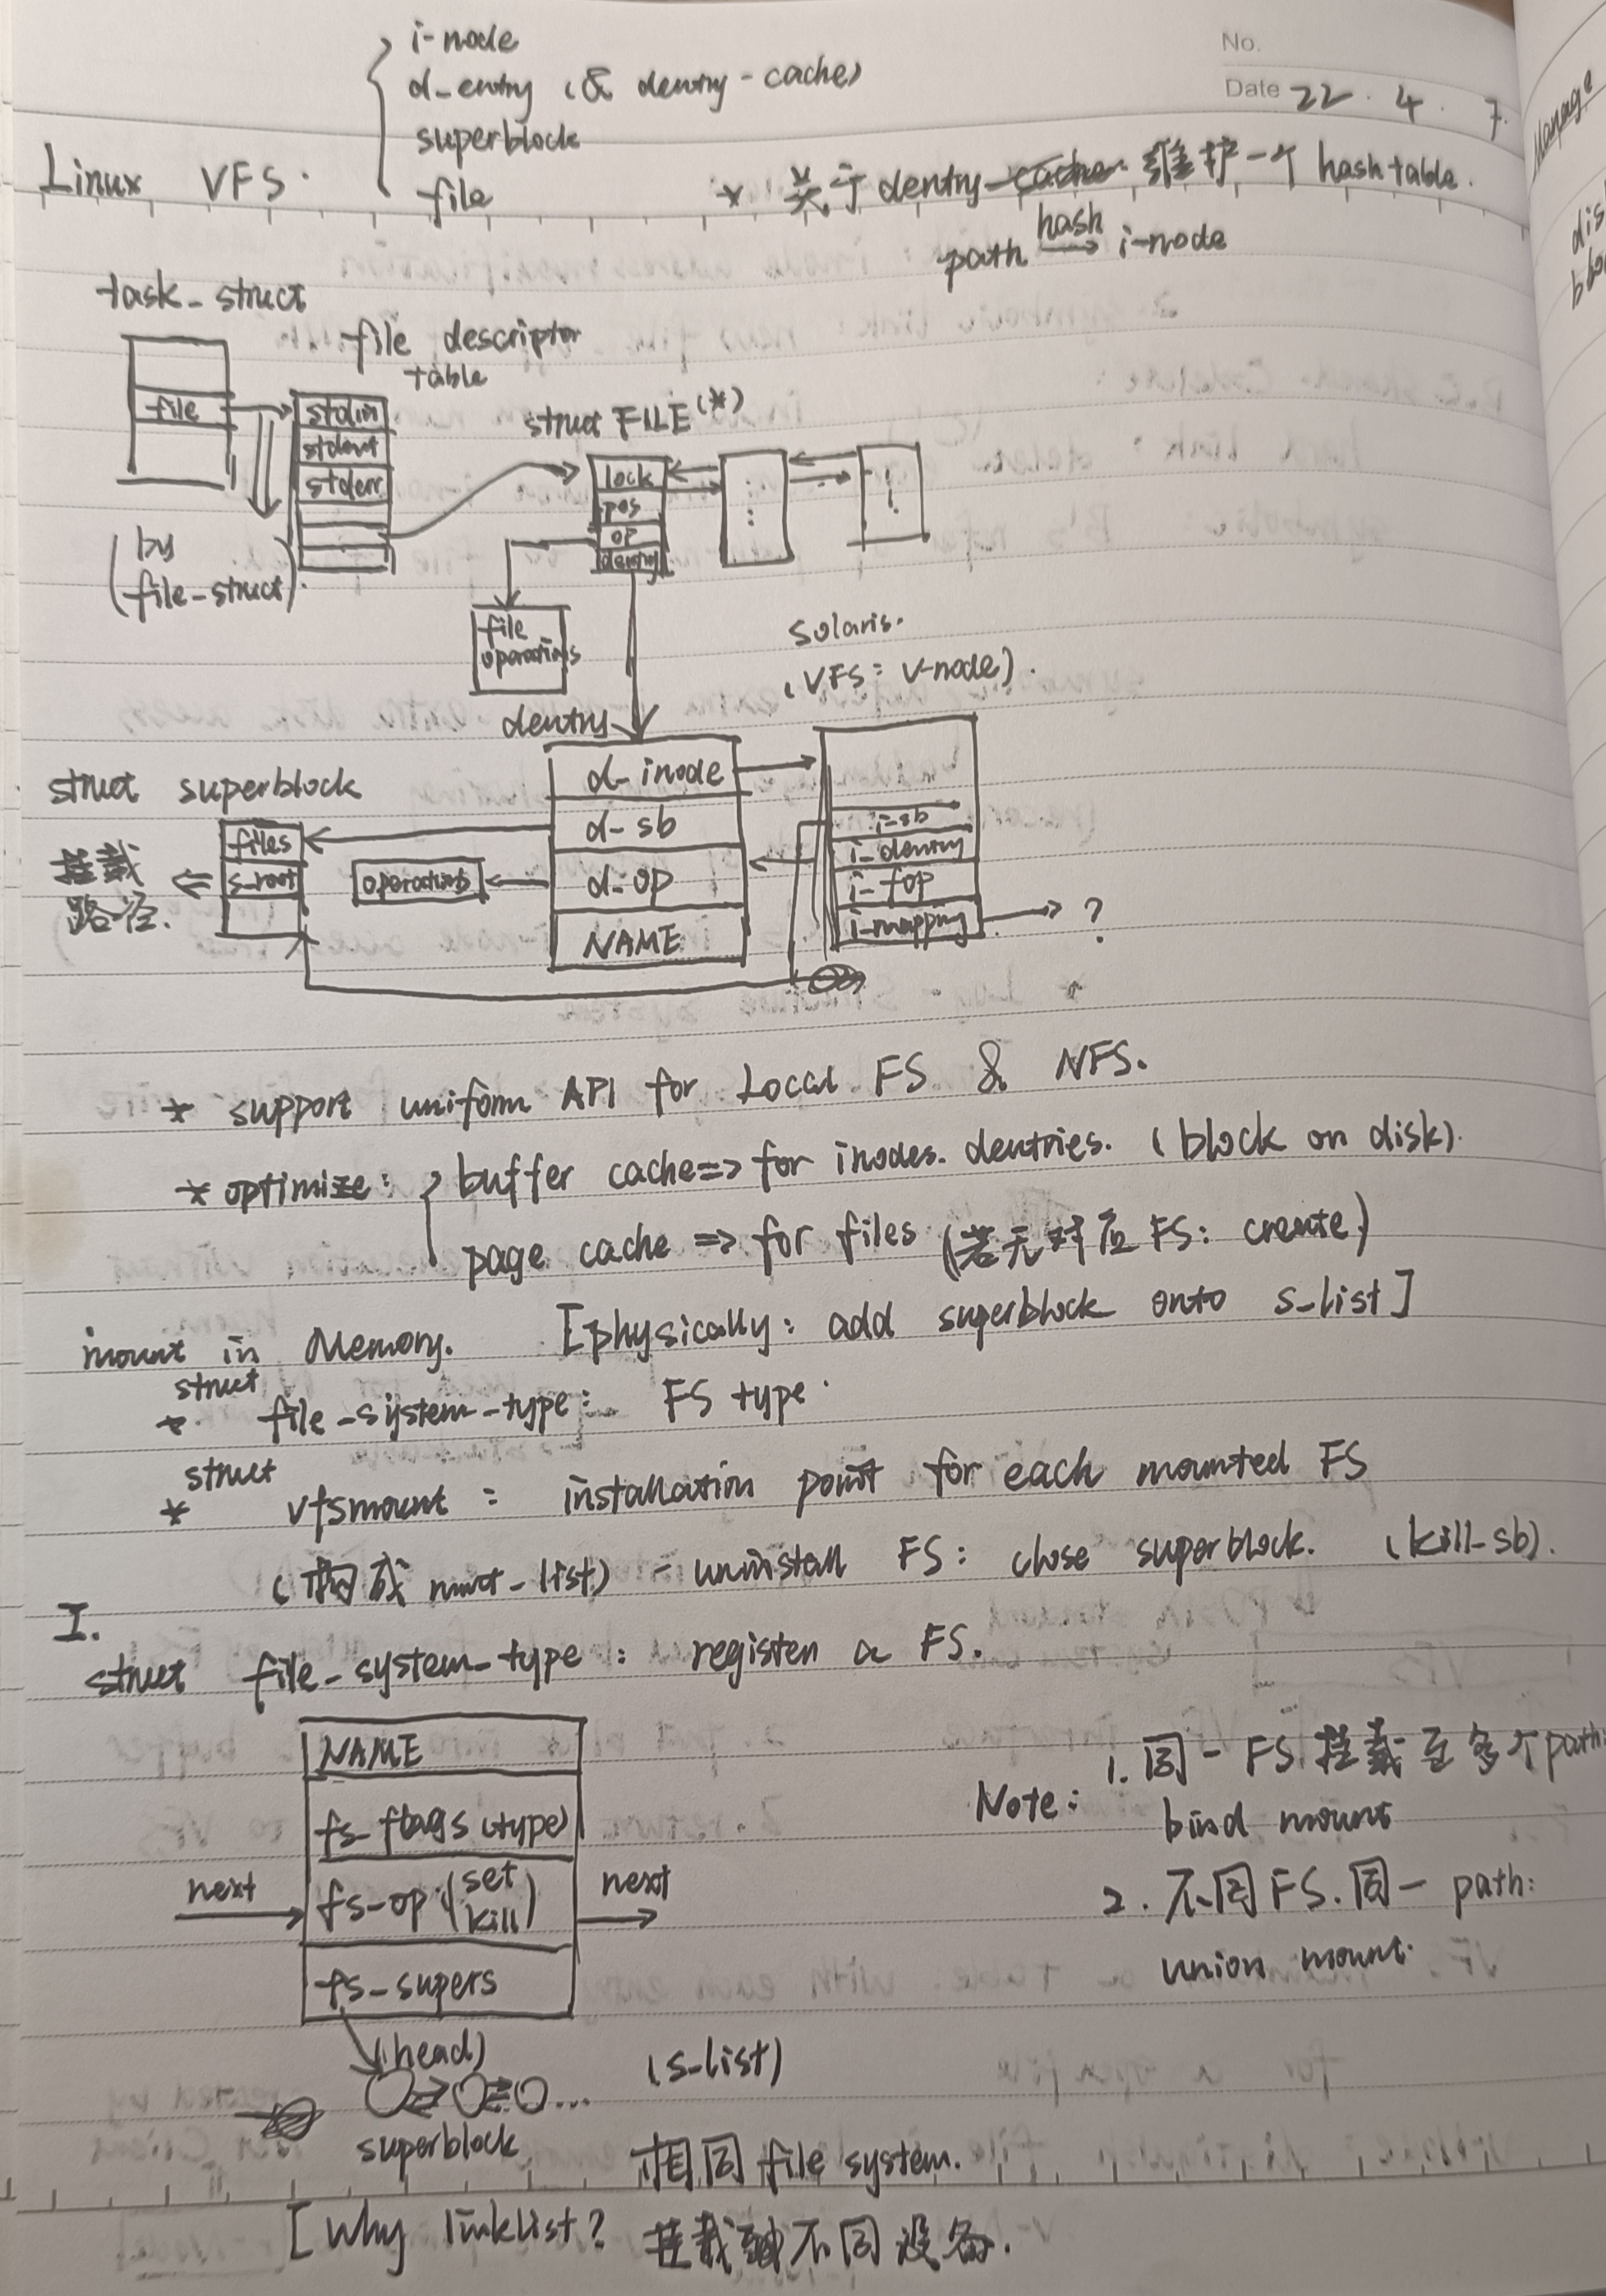 No.
Date 22.4.7.
i-node
d_entry (& dentry-cache)
superblock
file
Linux VFS.
* 关于dentry 维护一个 hash table.
path hash → i-node
task_struct
file
file descriptor
table
stdin
stdout
stderr
(by
file-struct).
struct FILE(*)
lock
pos
op
dentry
file
operations
Solaris.
(VFS: v-node).
dentry
d-inode
d-sb
d-op
NAME
struct superblock
files
s-root
挂载
路径.
operations
i-sb
i-dentry
i-fop
i-mapping → ?
* support uniform API for Local FS & NFS.
* optimize: buffer cache => for inodes. dentries. (block on disk).
page cache => for files (若无对应FS: create)
mount in Memory. [physically: add superblock onto s-list]
* struct file-system-type: FS type.
* struct vfsmount: installation point for each mounted FS
(构成 list) - uninstall FS: close superblock. (kill-sb).
I.
struct file_system_type: register a FS.
NAME
fs_flags (type)
next → fs-op: (set kill) next →
fs_supers
(head)
(s-list)
superblock
Note: 1. 同一FS.挂载至多个path:
bind mount
2. 不同FS.同一path:
union mount.
相同 file system.
[Why linklist? 挂载 不同设备.
Manage